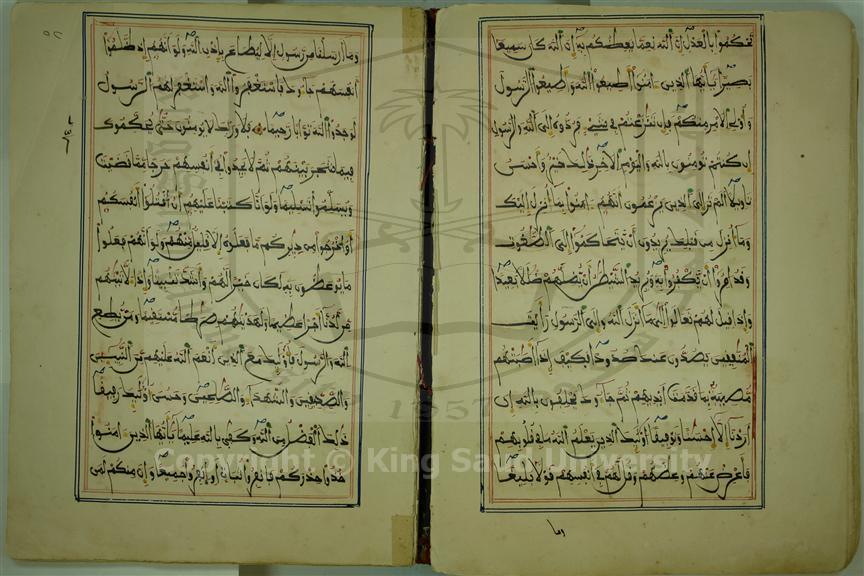 تحكموا بالعدل إن الله نعما يعظكم به إن الله كان سميعا
بصيرا يأيها الذين ءامنوا أطيعوا الله وأطيعوا الرسول
وأولى الأمر منكم فإن تنزعتم في شيء فردوه إلى الله والرسول
إن كنتم تومنون بالله واليوم الأخر ذلك خير وأحسن
تاويلا ألم تر إلى الذين يزعمون أنهم ءامنوا بما أنزل إليك
وما أنزل من قبلك يريدون أن يتحاكموا إلى الطغوت
وقد أمروا أن يكفروا به ويريد الشيطن أن يضلهم ضللا بعيدا
وإذا قيل لهم تعالوا إلى ما أنزل الله وإلى الرسول رأيت
المنفقين يصدون عنك صدودا فكيف إذا أصبتهم
مصيبة بما قدمت أيديهم ثم جاءوك يحلفون بالله إن
أردنا إلا إحسنا وتوفيقا أولئك الذين يعلم الله ما في قلوبهم
فأعرض عنهم وعظهم وقل لهم في أنفسهم قولا بليغا
وما
وما أرسلنا من رسول إلا ليطاع بإذن الله ولو أنهم إذ ظلموا
أنفسهم جاءوك فاستغفروا الله واستغفر لهم الرسول
لوجدوا الله توابا رحيما فلا وربك لا يومنون حتى يحكموك
فيما شجر بينهم ثم لا يجدوا في أنفسهم حرجا مما قضيت
ويسلموا تسليما ولو أنا كتبنا عليهم أن اقتلوا أنفسكم
أو اخرجوا من ديركم ما فعلوه إلا قليل منهم ولو أنهم فعلوا
ما يوعظون به لكان خيرا لهم وأشد تثبيتا وإذا لأتينهم
من لدنا أجرا عظيما ولهدينهم صرطا مستقيما ومن يطع
الله والرسول فأولئك مع الذين أنعم الله عليهم من النبيين
والصديقين والشهداء والصلحين وحسن أولئك رفيقا
ذلك الفضل من الله وكفى بالله عليما يأيها الذين ءامنوا
خذوا حذركم فانفروا ثبات أو انفروا جميعا وإن منكم لمن
Copyright © King Saud University
1957